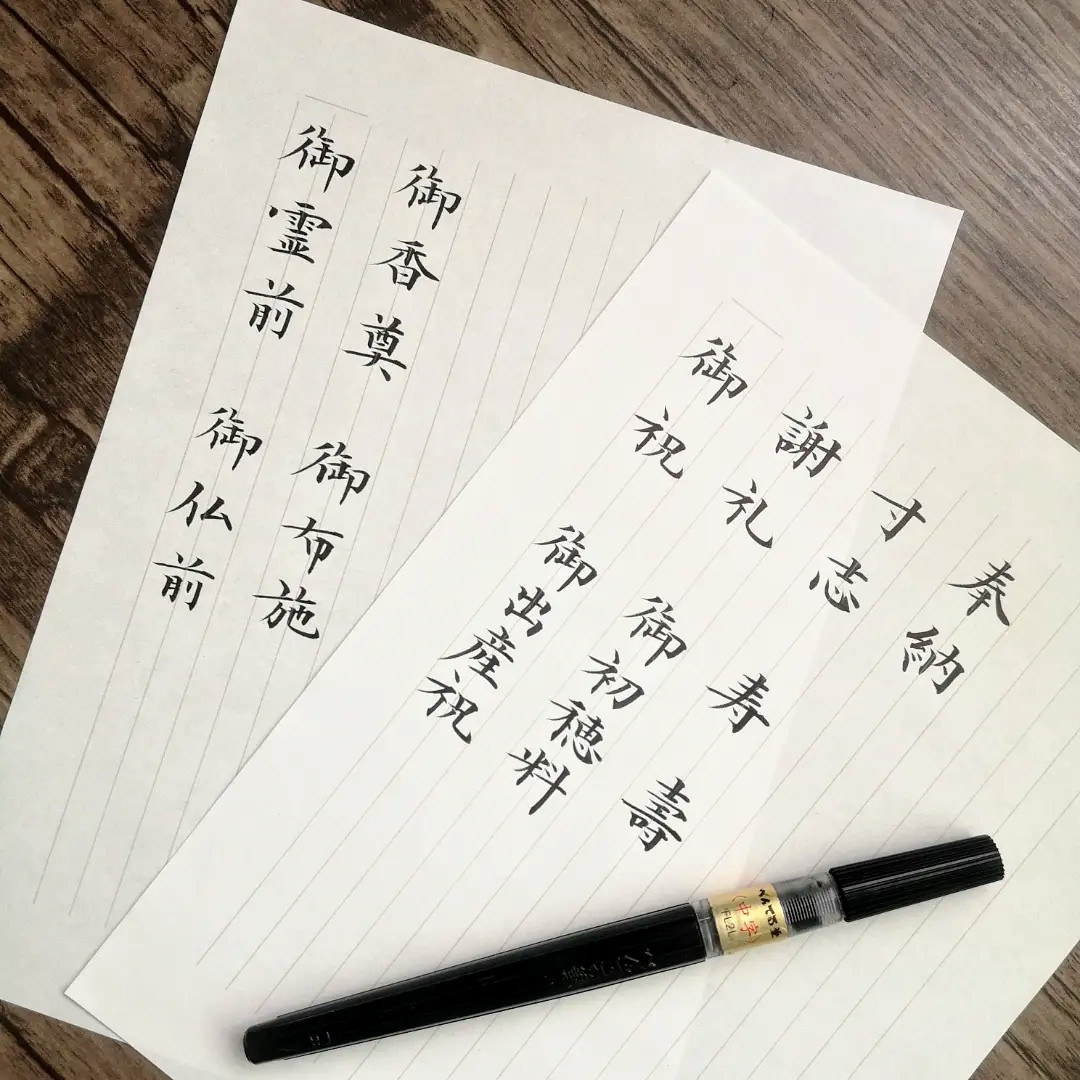 奉納
寸志 寿 壽
謝礼 御初穂料
御祝 御出産祝
御香奠 御布施
御霊前 御仏前
ぺんてる筆
(中字)
FL2L